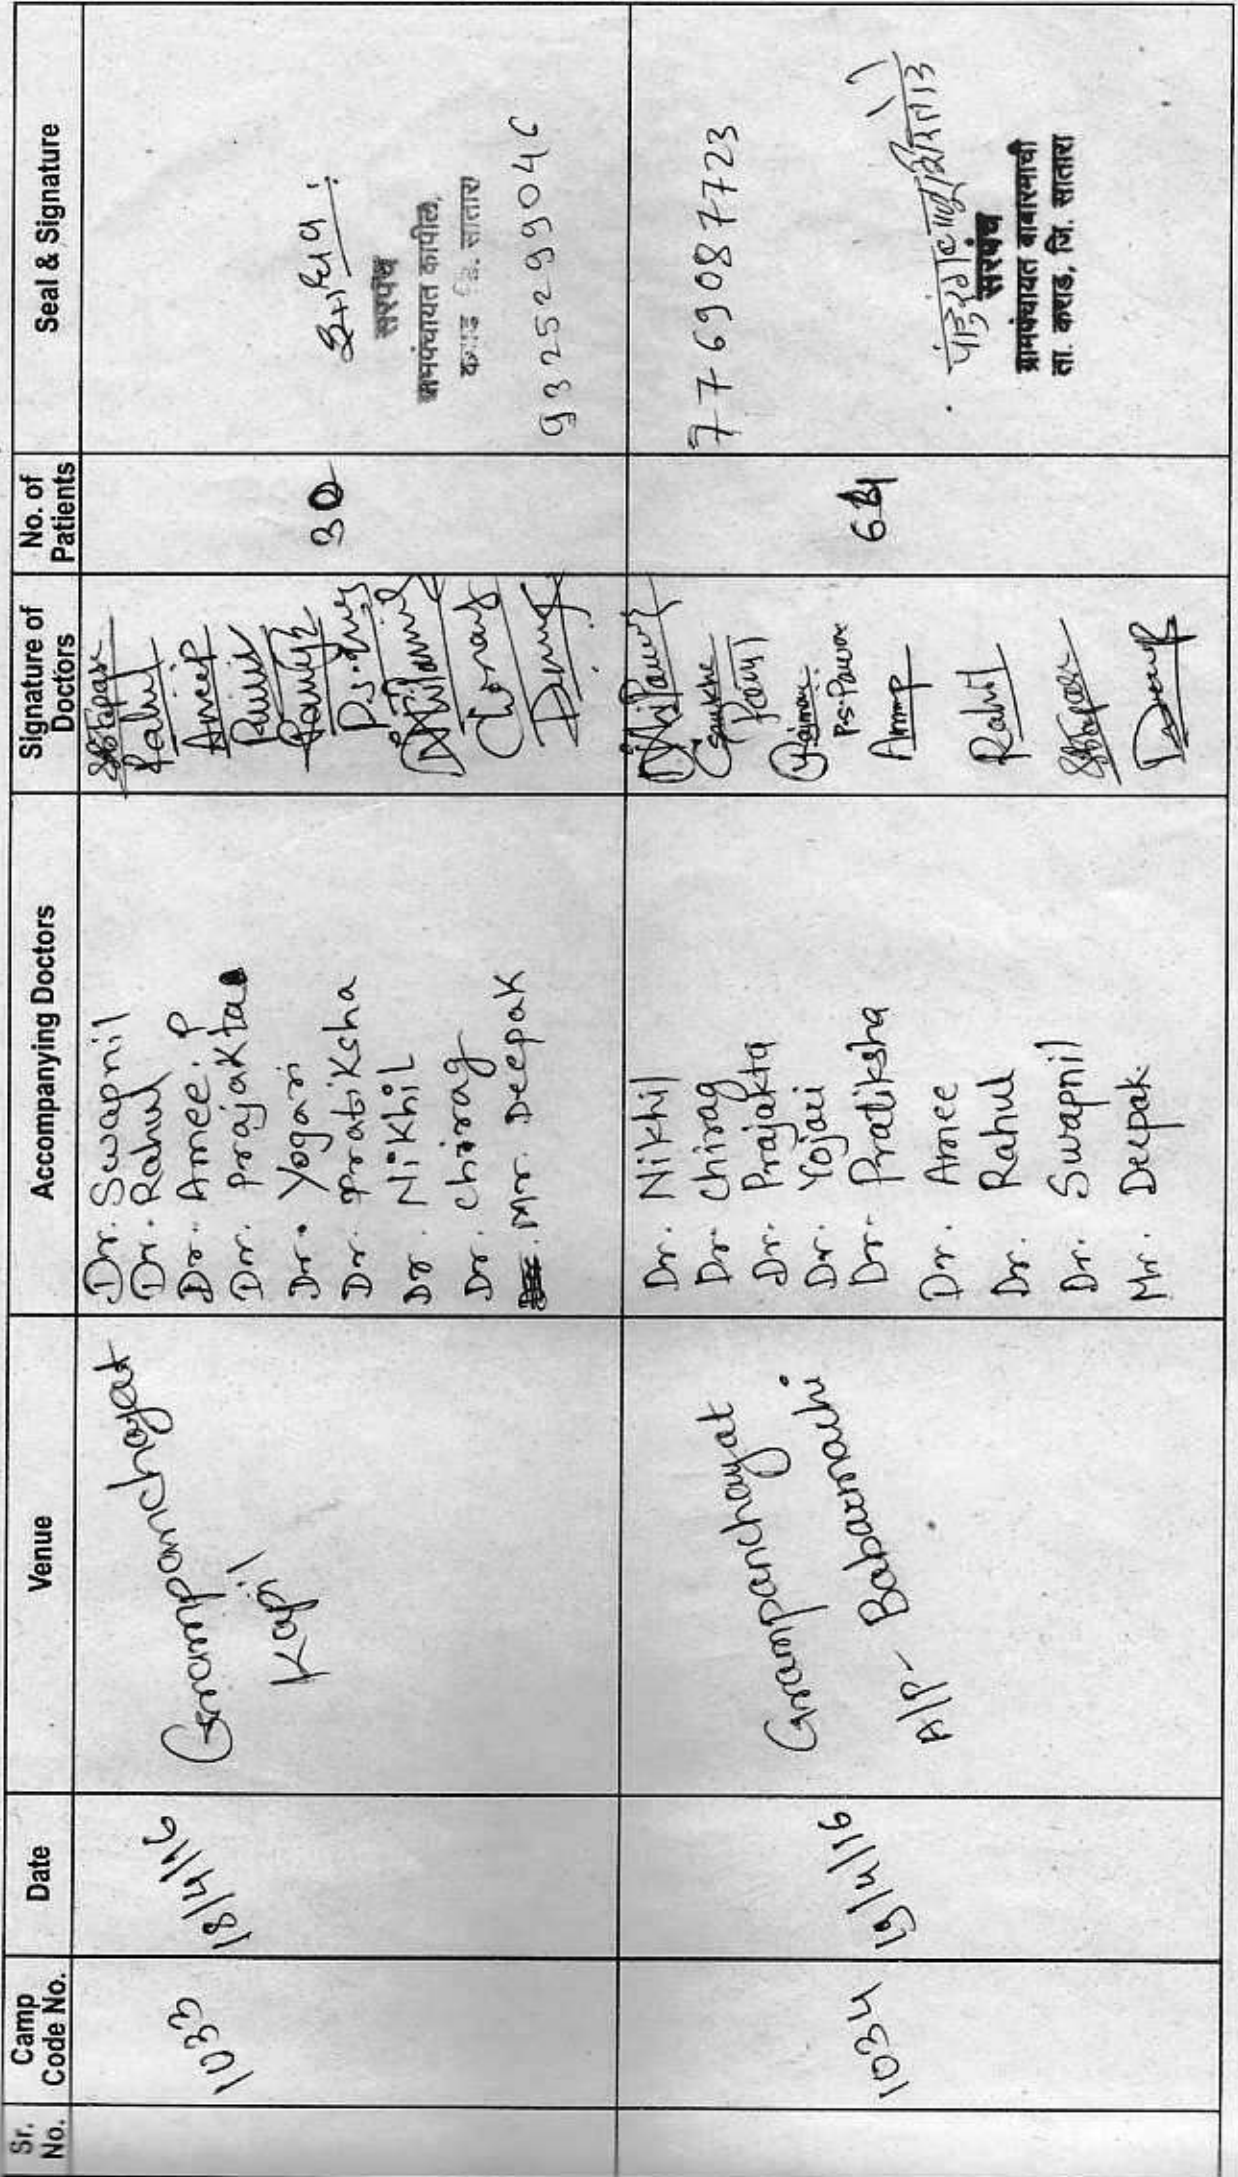 Sr. No.
Camp Code No.
Date
Venue
Accompanying Doctors
Signature of Doctors
No. of Patients
Seal & Signature
1033
18/4/16
Grampanchayat
Kapil
Dr. Swapnil
Dr. Rahul
Dr. Amee. P
Dr. Prajakta
Dr. Yogari
Dr. Pratiksha
Dr. Nikhil
Dr. Chirag
Mr. Deepak
Rahul
30
सरपंच
ग्रामपंचायत कापील,
कराड जि. सातारा
1034
19/4/16
Grampanchayat
A/P- Babarmachi
Dr. Nikhil
Dr. Chirag
Dr. Prajakta
Dr. Yojaui
Dr. Pratiksha
Dr. Amee
Dr. Rahul
Dr. Swapnil
Mr. Deepak
P.S. Pawar
Rahul
7769087723
सरपंच
ग्रामपंचायत बाबरमाची
ता. कराड, जि. सातारा